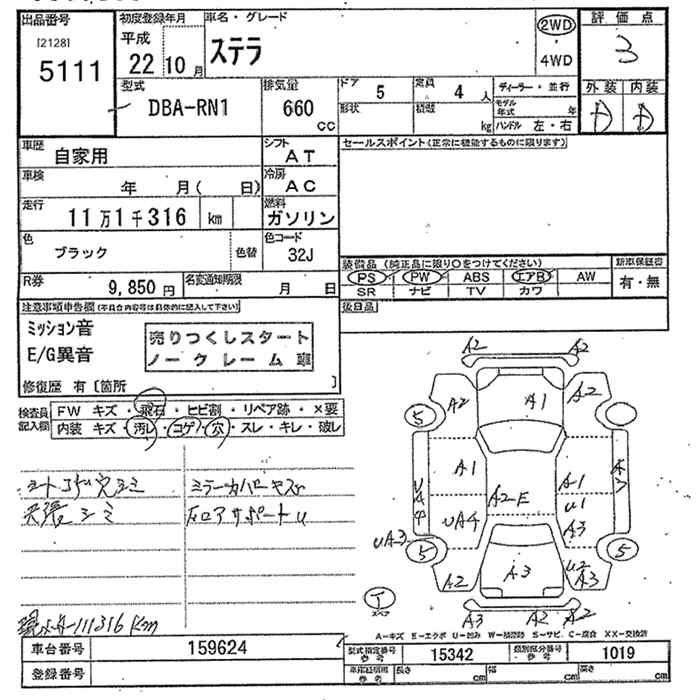 出品番号
[2128]
5111
初度登録年月
平成
22 10 月
車名・グレード
ステラ
2WD
4WD
評価点
3
外装 内装
A A
型式
DBA-RN1
排気量
660
cc
ドア 5
定員 4 人
形状
積載 kg
ディーラー・並行
モデル年式 年
ハンドル 左・右
車歴
自家用
シフト
AT
セールスポイント(正常に機能するものに限ります)
車検
年 月( 日)
冷房
AC
走行
11万1千316 km
燃料
ガソリン
色
ブラック
色替
色コード
32J
装備品(純正品に限り○をつけてください)
PS PW ABS エアB AW
SR ナビ TV カワ
新車保証書
有・無
R券
9,850 円
名変通知期限
月 日
後日品
注意事項申告欄(不具合内容等は具体的に記入して下さい)
ミッション音
E/G異音
売りつくしスタート
ノークレーム車
修復歴 有〔箇所 〕
検査員記入欄
FW キズ・飛石・ヒビ割・リペア跡・×要
内装 キズ・汚レ・コゲ・穴・スレ・キレ・破レ
シートコゲ穴シミ
天張シミ
ミラーカバーキズ
右ロアサポートU
A2 A2
A2 A1 A2
5
A1 A1
UA4 A2E U1
UA4 A3
UA3
5 5
A2 A3 U2 A3
A3 A2 A2
T
スペア
A-キズ E-エクボ U-凹み W-補修跡 S-サビ C-腐食 XX-交換済
111316 Km
車台番号 159624
登録番号
型式指定番号 参考 15342
類別区分番号 参考 1019
車庫証明用 参考
長さ cm
幅 cm
高さ cm